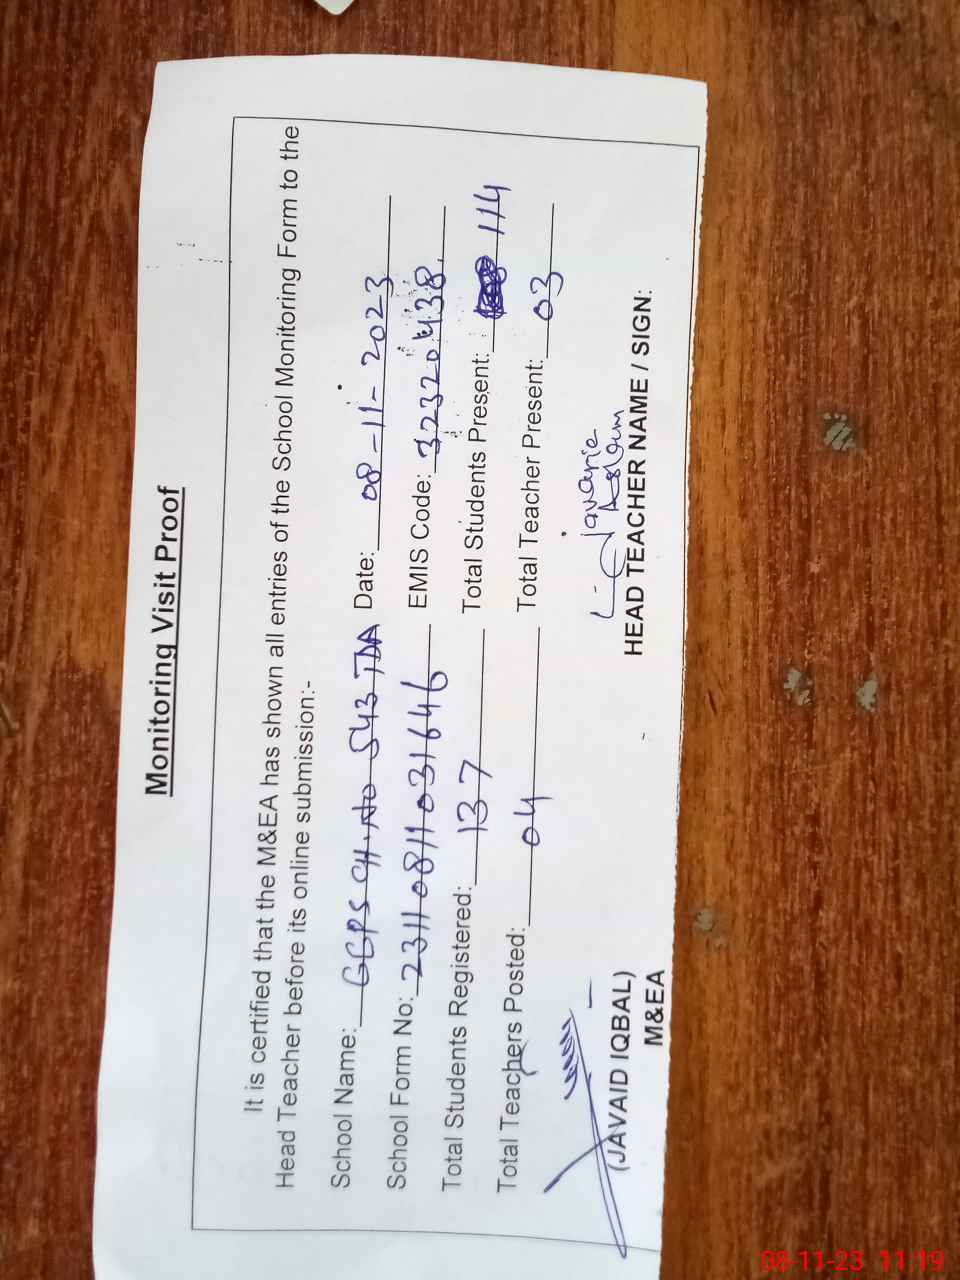 Monitoring Visit Proof
It is certified that the M&EA has shown all entries of the School Monitoring Form to the
Head Teacher before its online submission:-
School Name: GGPS CH.NO 543 TDA Date: 08-11-2023
School Form No: 231108111031646 EMIS Code: 32320438.
Total Students Registered: 137 Total Students Present: 114
Total Teachers Posted: 04 Total Teacher Present: 03
Javaria
Aslam
(JAVAID IQBAL) HEAD TEACHER NAME / SIGN:
M&EA
08-11-23 11:19